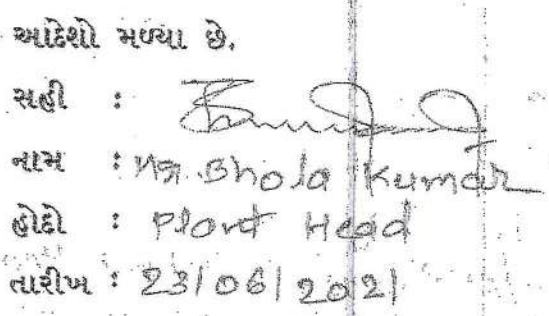 આદેશો મળ્યા છે.
સહી :
નામ : Mr. Bhola Kumar
હોદો : Plant Head
તારીખ : 23/06/2021